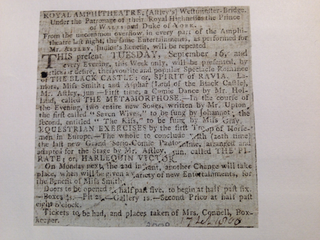 ROYAL AMPHITHEATRE, (Astley's) Westminster-Bridge.
Under the Patronage of their Royal Highnesses the Prince
of WALES and Duke of YORK.
From the uncommon overflow, in every part of the Amphi-
theatre last night, the same Entertainments, as performed for
Mr. ASTLEY, Junior's Benefit, will be repeated.
THIS present TUESDAY, September 16, and
every Evening, this Week only, will be presented, by
particular desire, the Romantic and Spectacle Romance
THE BLACK CASTLE; or, SPIRIT of RAVIA.
Miss Smith; and Lord of the Black Castle,
Mr. Astley, jun. a Comic Dance by Mr. Hol-
land, called THE METAMORPHOSE. In the course of
the Evening, two entire new Songs, written by Mr. Upton,
the first called "Seven Wives," to be sung by Johannot; the
second, entitled "The Kiss," to be sung by Miss Gray.
EQUESTRIAN EXERCISES by the first Troop of Horse-
men in Europe. The whole to conclude (8th time)
the last new Grand Serio-Comic Pantomime, arranged and
adapted for the Stage by Mr. Astley, jun. called THE PI-
RATE; or, HARLEQUIN VICTOR.
On Monday next, the 22d instant, another Change will take
place, when will be given a variety of new Entertainments, for
the Benefit of Miss Smith.
Doors to be opened at half past five, to begin at half past six.
Boxes Pit Gallery 1s. Second Price at half past
eight o'clock.
Tickets to be had, and places taken of Mrs. Connell, Box-
keeper.